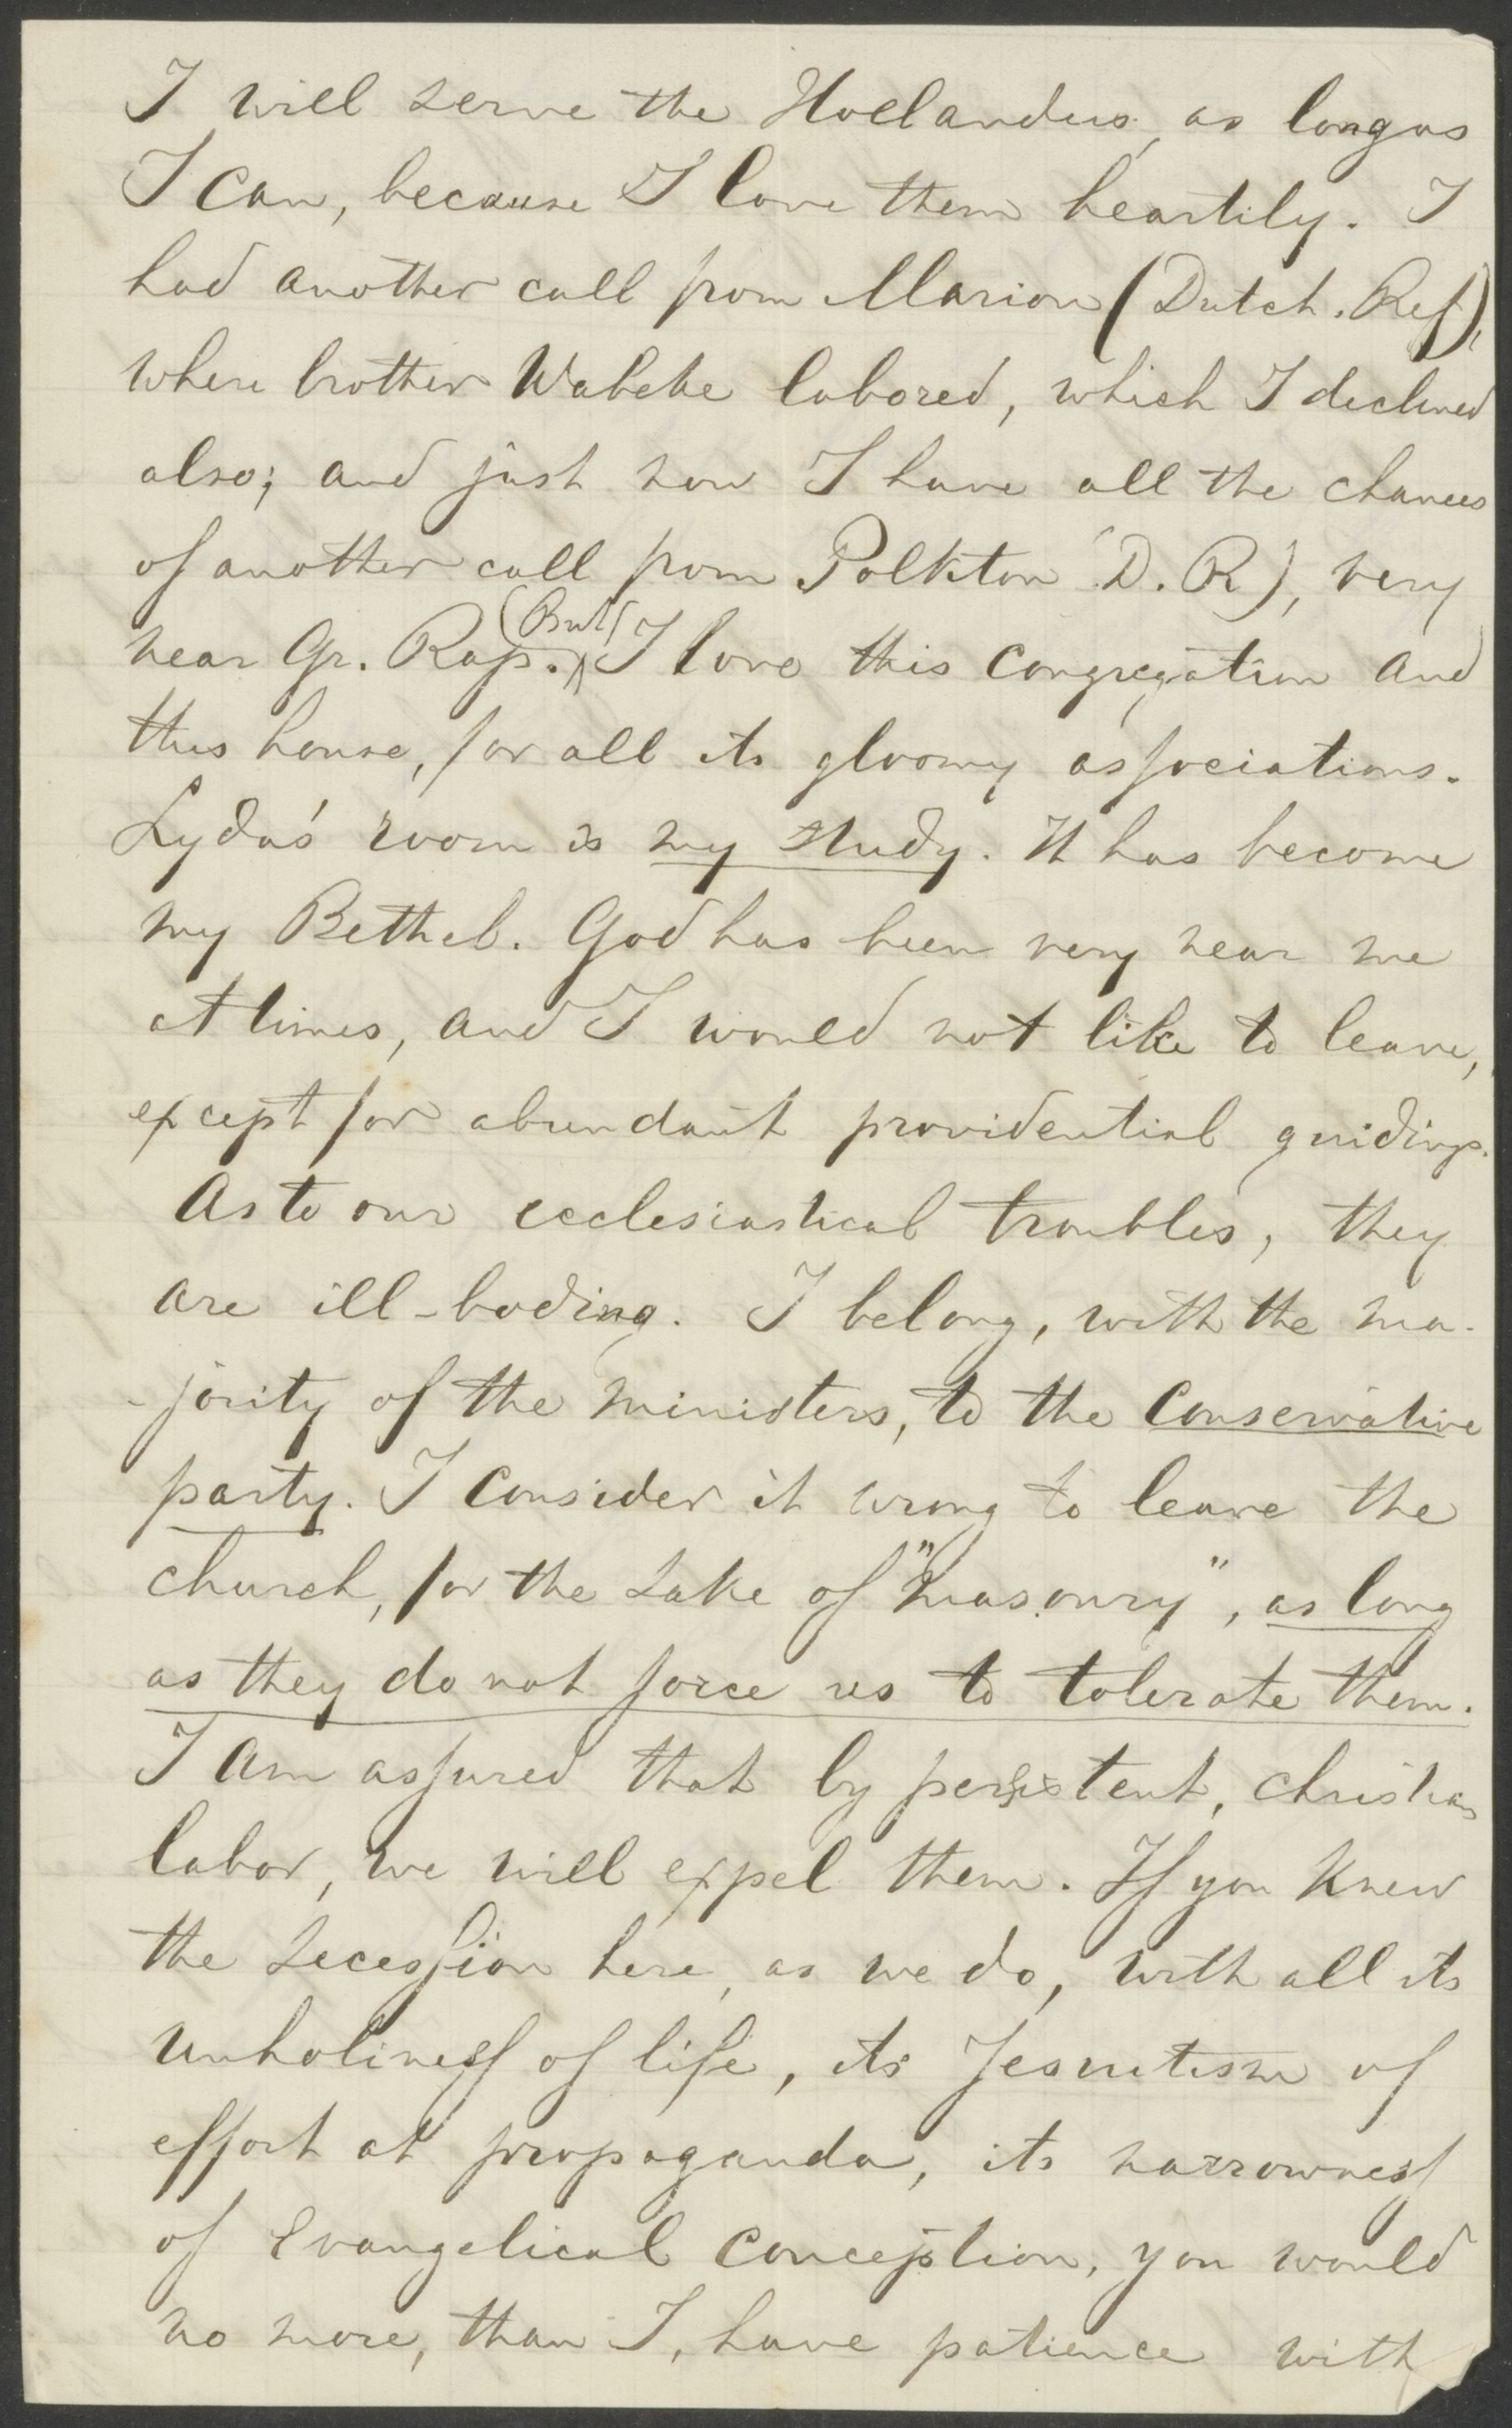 I will serve the Hollanders, as long as
I can, because I love them heartily. I
had another call from Marion (Dutch. Ref),
where brother Wabeke labored, which I declined
also; and just now I have all the chances
of another call from Polkton (D. R), very
near Gr. Rap. (But) I love this congregation and
this house, for all its gloomy associations.
Lyda's room is my study. It has become
my Bethel. God has been very near me
at times, and I would not like to leave,
except for abundant providential guidings.
As to our ecclesiastical troubles, they
are ill-boding. I belong, with the ma-
-jority of the ministers, to the Conservative
party. I consider it wrong to leave the
church, for the sake of "masonry", as long
as they do not force us to tolerate them.
I am assured that by persistent, christian
labor, we will expel them. If you knew
the secession here, as we do, with all its
unholiness of life, its Jesuitism of
effort at propaganda, its narrowness
of Evangelical conception, you would
no more, than I, have patience with